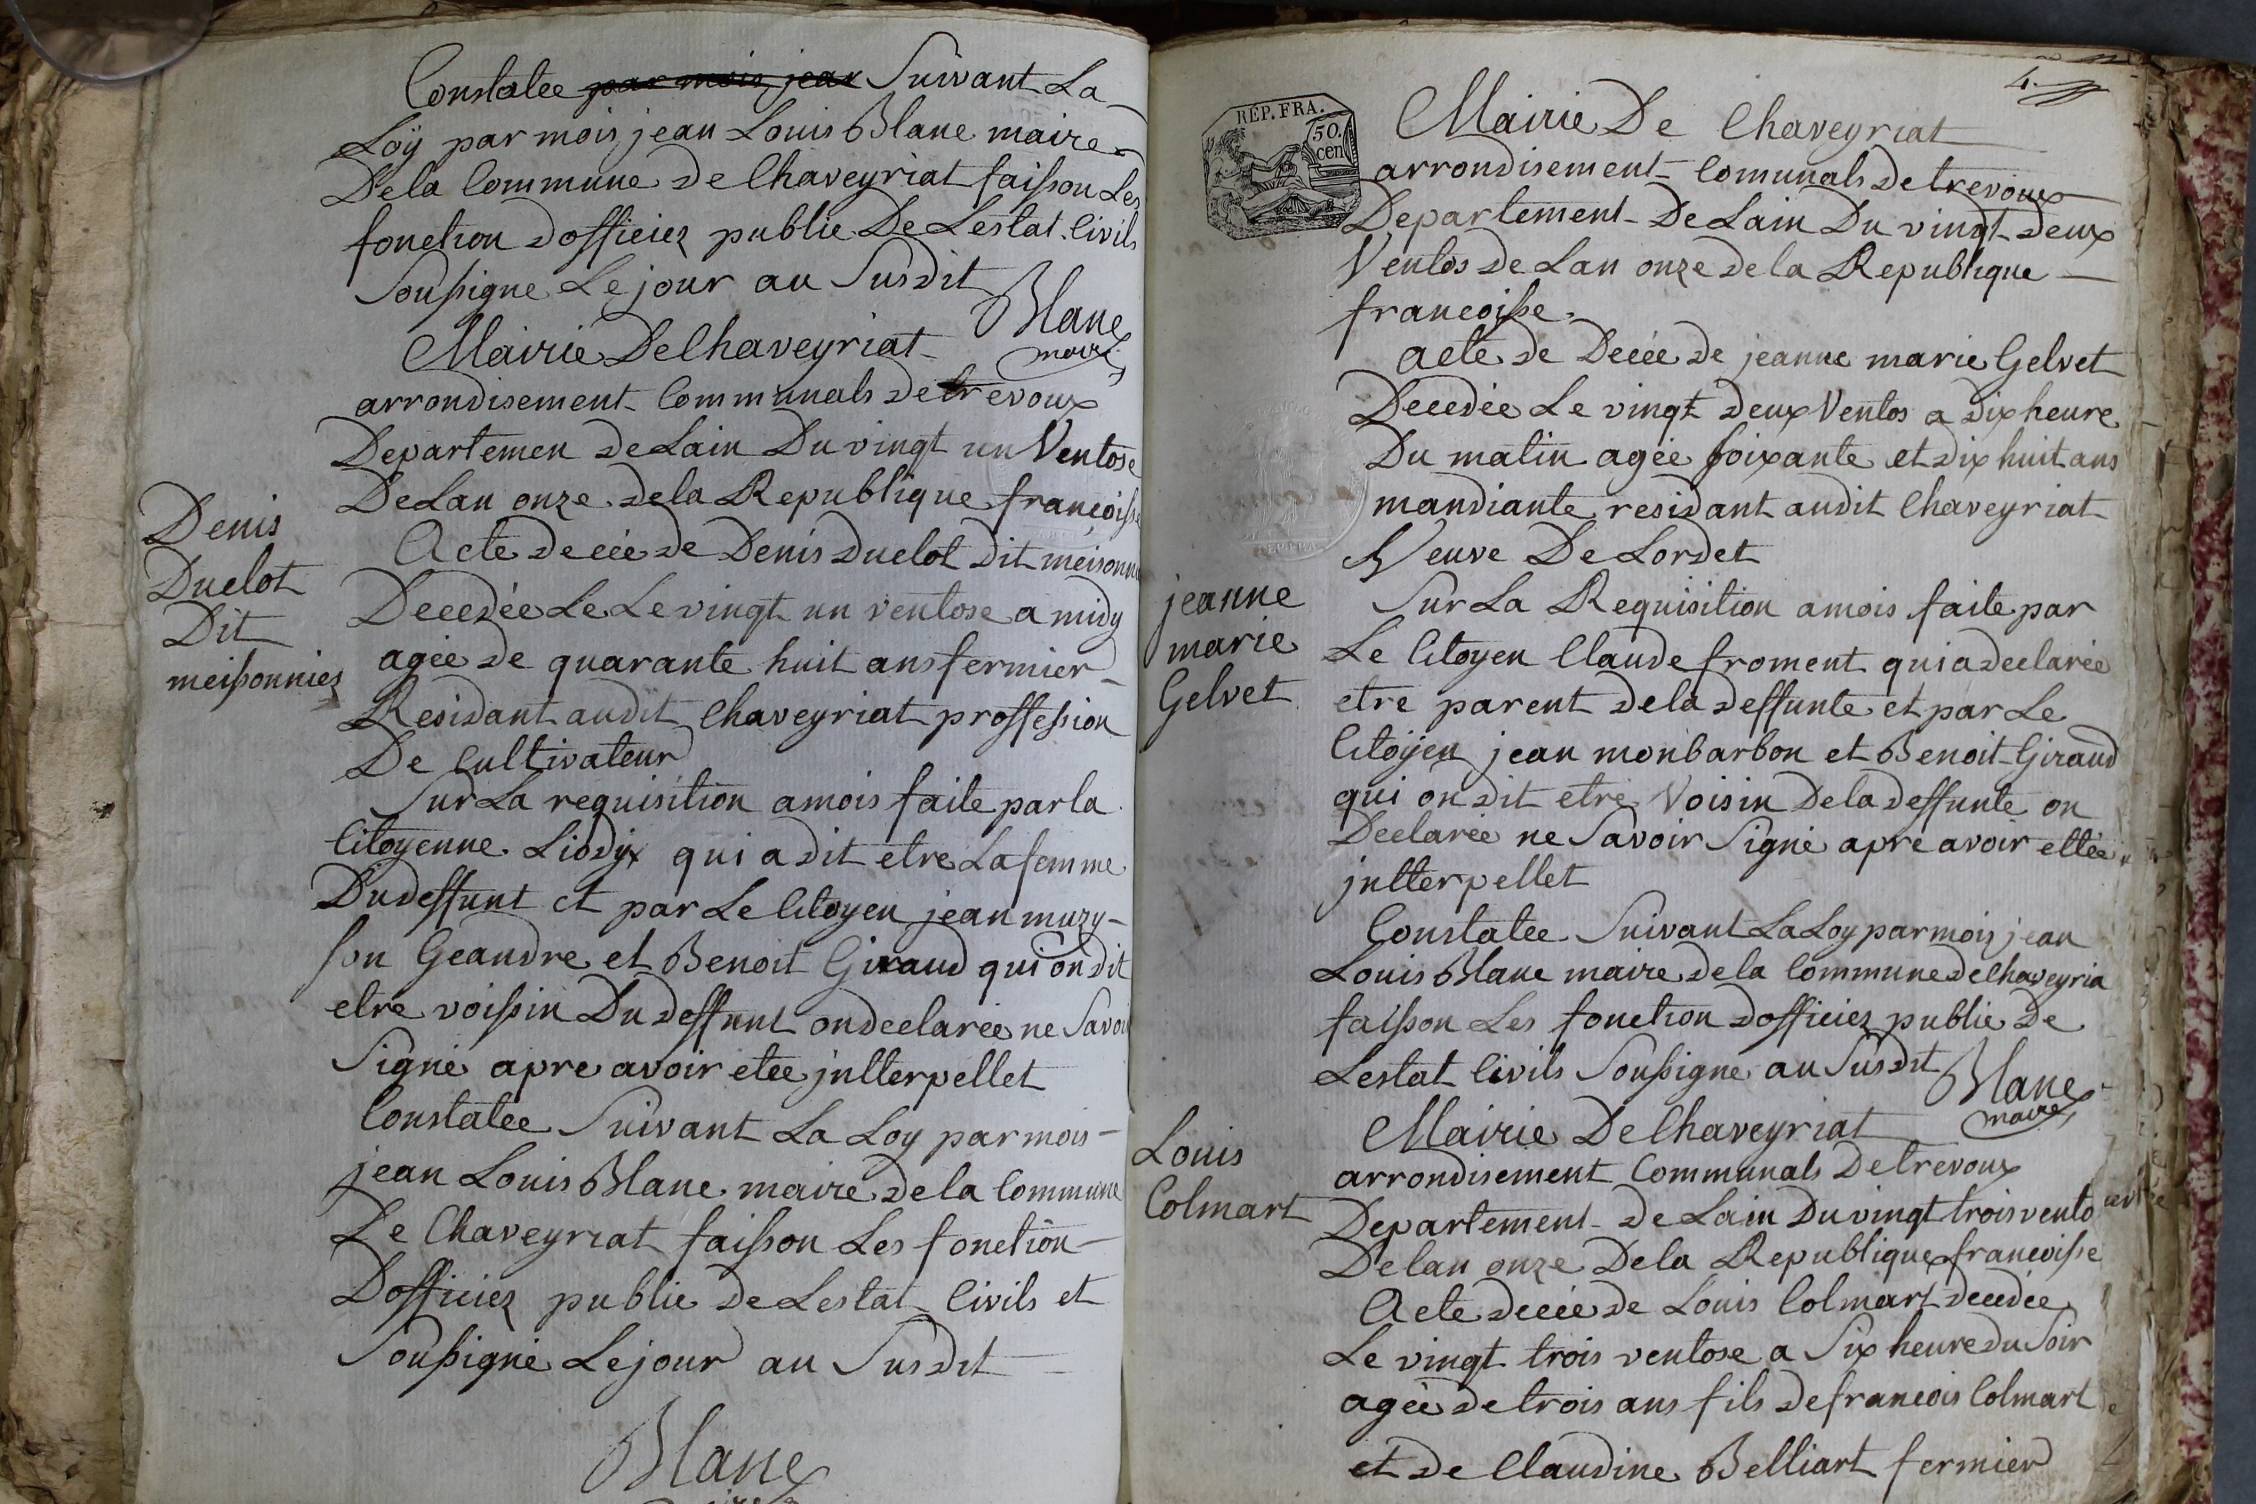 Constatee par mois jean Suivant La
Loÿ par mois jean Louis Blanc maire
De la Commune de Chaveyriat faisson Les
fonction dofficiez public De Lestat Civils
Soussigne Le jour au Susdit
Blanc
maire
Mairie De Chaveyriat
arrondisement Communals de trevoux
Departemen de Lain Du vingt un Ventose
De Lan onze de la Republique francoisse
Denis
Duclot
Dit
meissonniez
Acte decée de Denis Duclot dit meisonni
Decedée Le Le vingt un ventose a midy
agée de quarante huit ans fermier
Residant audit Chaveyriat proffession
De Cultivateur
Sur La requisition a mois faite par la
Citoyenne qui a dit etre La femme
Du deffunt et par Le Citoyen jean muzy
son Geandre et Benoit Giraud qui on dit
etre voissin Du deffunt on declarée ne Savoi
Signé apre avoir etée jntterpellet
Constatee Suivant La Loy par mois
jean Louis Blanc maire de la Commune
De Chaveyriat faisson Les fonction
Dofficiez public de Lestat Civils et
Soussigné Le jour au Susdit
Blanc
4
RÉP. FRA.
50.
cen
Mairie De Chaveyriat
arrondisement Comunals de trevoux
Departement De Lain Du vingt deux
Ventos de Lan onze de la Republique
francoisse.
acte de Decée de jeanne marie Gelvet
Decedée Le vingt deux Ventos a dix heure
Du matin agée soixante et dix huit ans
mandiante residant audit Chaveyriat
Veuve De Lordet
jeanne
marie
Gelvet
Sur La Requisition a mois faite par
Le Citoyen Claude froment qui a declarée
etre parent de la deffunte et par Le
Citoÿen jean monbarbon et Benoit Giraud
qui on dit etre Voisin De la deffunte on
Declarée ne Savoir Signé apre avoir ettée
jntterpellet
Constatee Suivant La Loy par mois jean
Louis Blanc maire de la Commune de Chaveyria
faisson Les fonction dofficiez public De
Lestat Civils Soussigne au Susdit
Blanc
maire
Mairie De Chaveyriat
Louis
Colmart
arrondisement Communals De trevoux
Departement de Lain Du vingt trois vento
De lan onze De la Republique francoisse
Acte decée de Louis Colmart decedée
Le vingt trois ventose a Six heure du Soir
agée de trois ans fils de francois Colmart
et de Claudine Belliart fermier